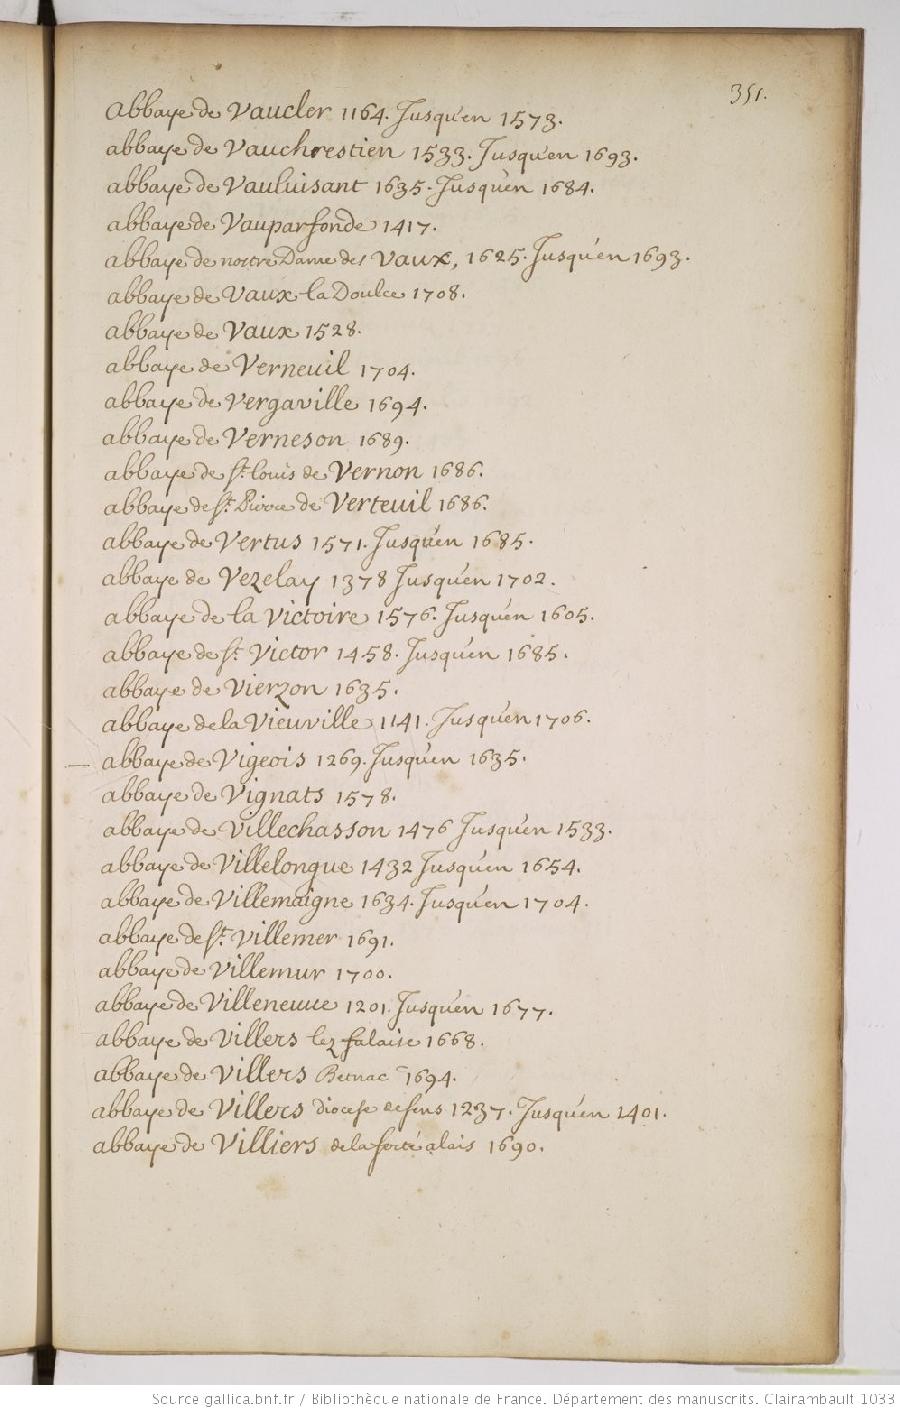 351.
abbaye de Vaucler 1164. Jusqu'en 1573.
abbaye de Vauchrestien 1533. Jusqu'en 1693.
abbaye de Vauluisant 1635. Jusqu'en 1684.
abbaye de Vauparfonde 1417.
abbaye de nostre Dame des Vaux, 1625. Jusqu'en 1693.
abbaye de Vaux la Doulce 1708.
abbaye de Vaux 1528.
abbaye de Verneuil 1704.
abbaye de Vergaville 1694.
abbaye de Verneson 1689.
abbaye de St. Louis de Vernon 1686.
abbaye de St. Pierre de Verteuil 1686.
abbaye de Vertus 1571. Jusqu'en 1685.
abbaye de Vezelay 1378 Jusqu'en 1702.
abbaye de la Victoire 1576. Jusqu'en 1605.
abbaye de St. Victor 1458. Jusqu'en 1685.
abbaye de Vierzon 1635.
abbaye de la Vieuville 1141. Jusqu'en 1706.
abbaye de Vigeois 1269. Jusqu'en 1635.
abbaye de Vignats 1578.
abbaye de Villechasson 1476 Jusqu'en 1533.
abbaye de Villelongue 1432 Jusqu'en 1654.
abbaye de Villemaigne 1634. Jusqu'en 1704.
abbaye de St. Villemer 1691.
abbaye de Villemur 1700.
abbaye de Villeneuue 1201. Jusqu'en 1677.
abbaye de Villers lez falaise 1668.
abbaye de Villers Betnac 1694.
abbaye de Villers diocese de sens 1237. Jusqu'en 1401.
abbaye de Villiers de la ferté alais 1690.
Source gallica.bnf.fr / Bibliothèque nationale de France. Département des manuscrits. Clairambault 1033